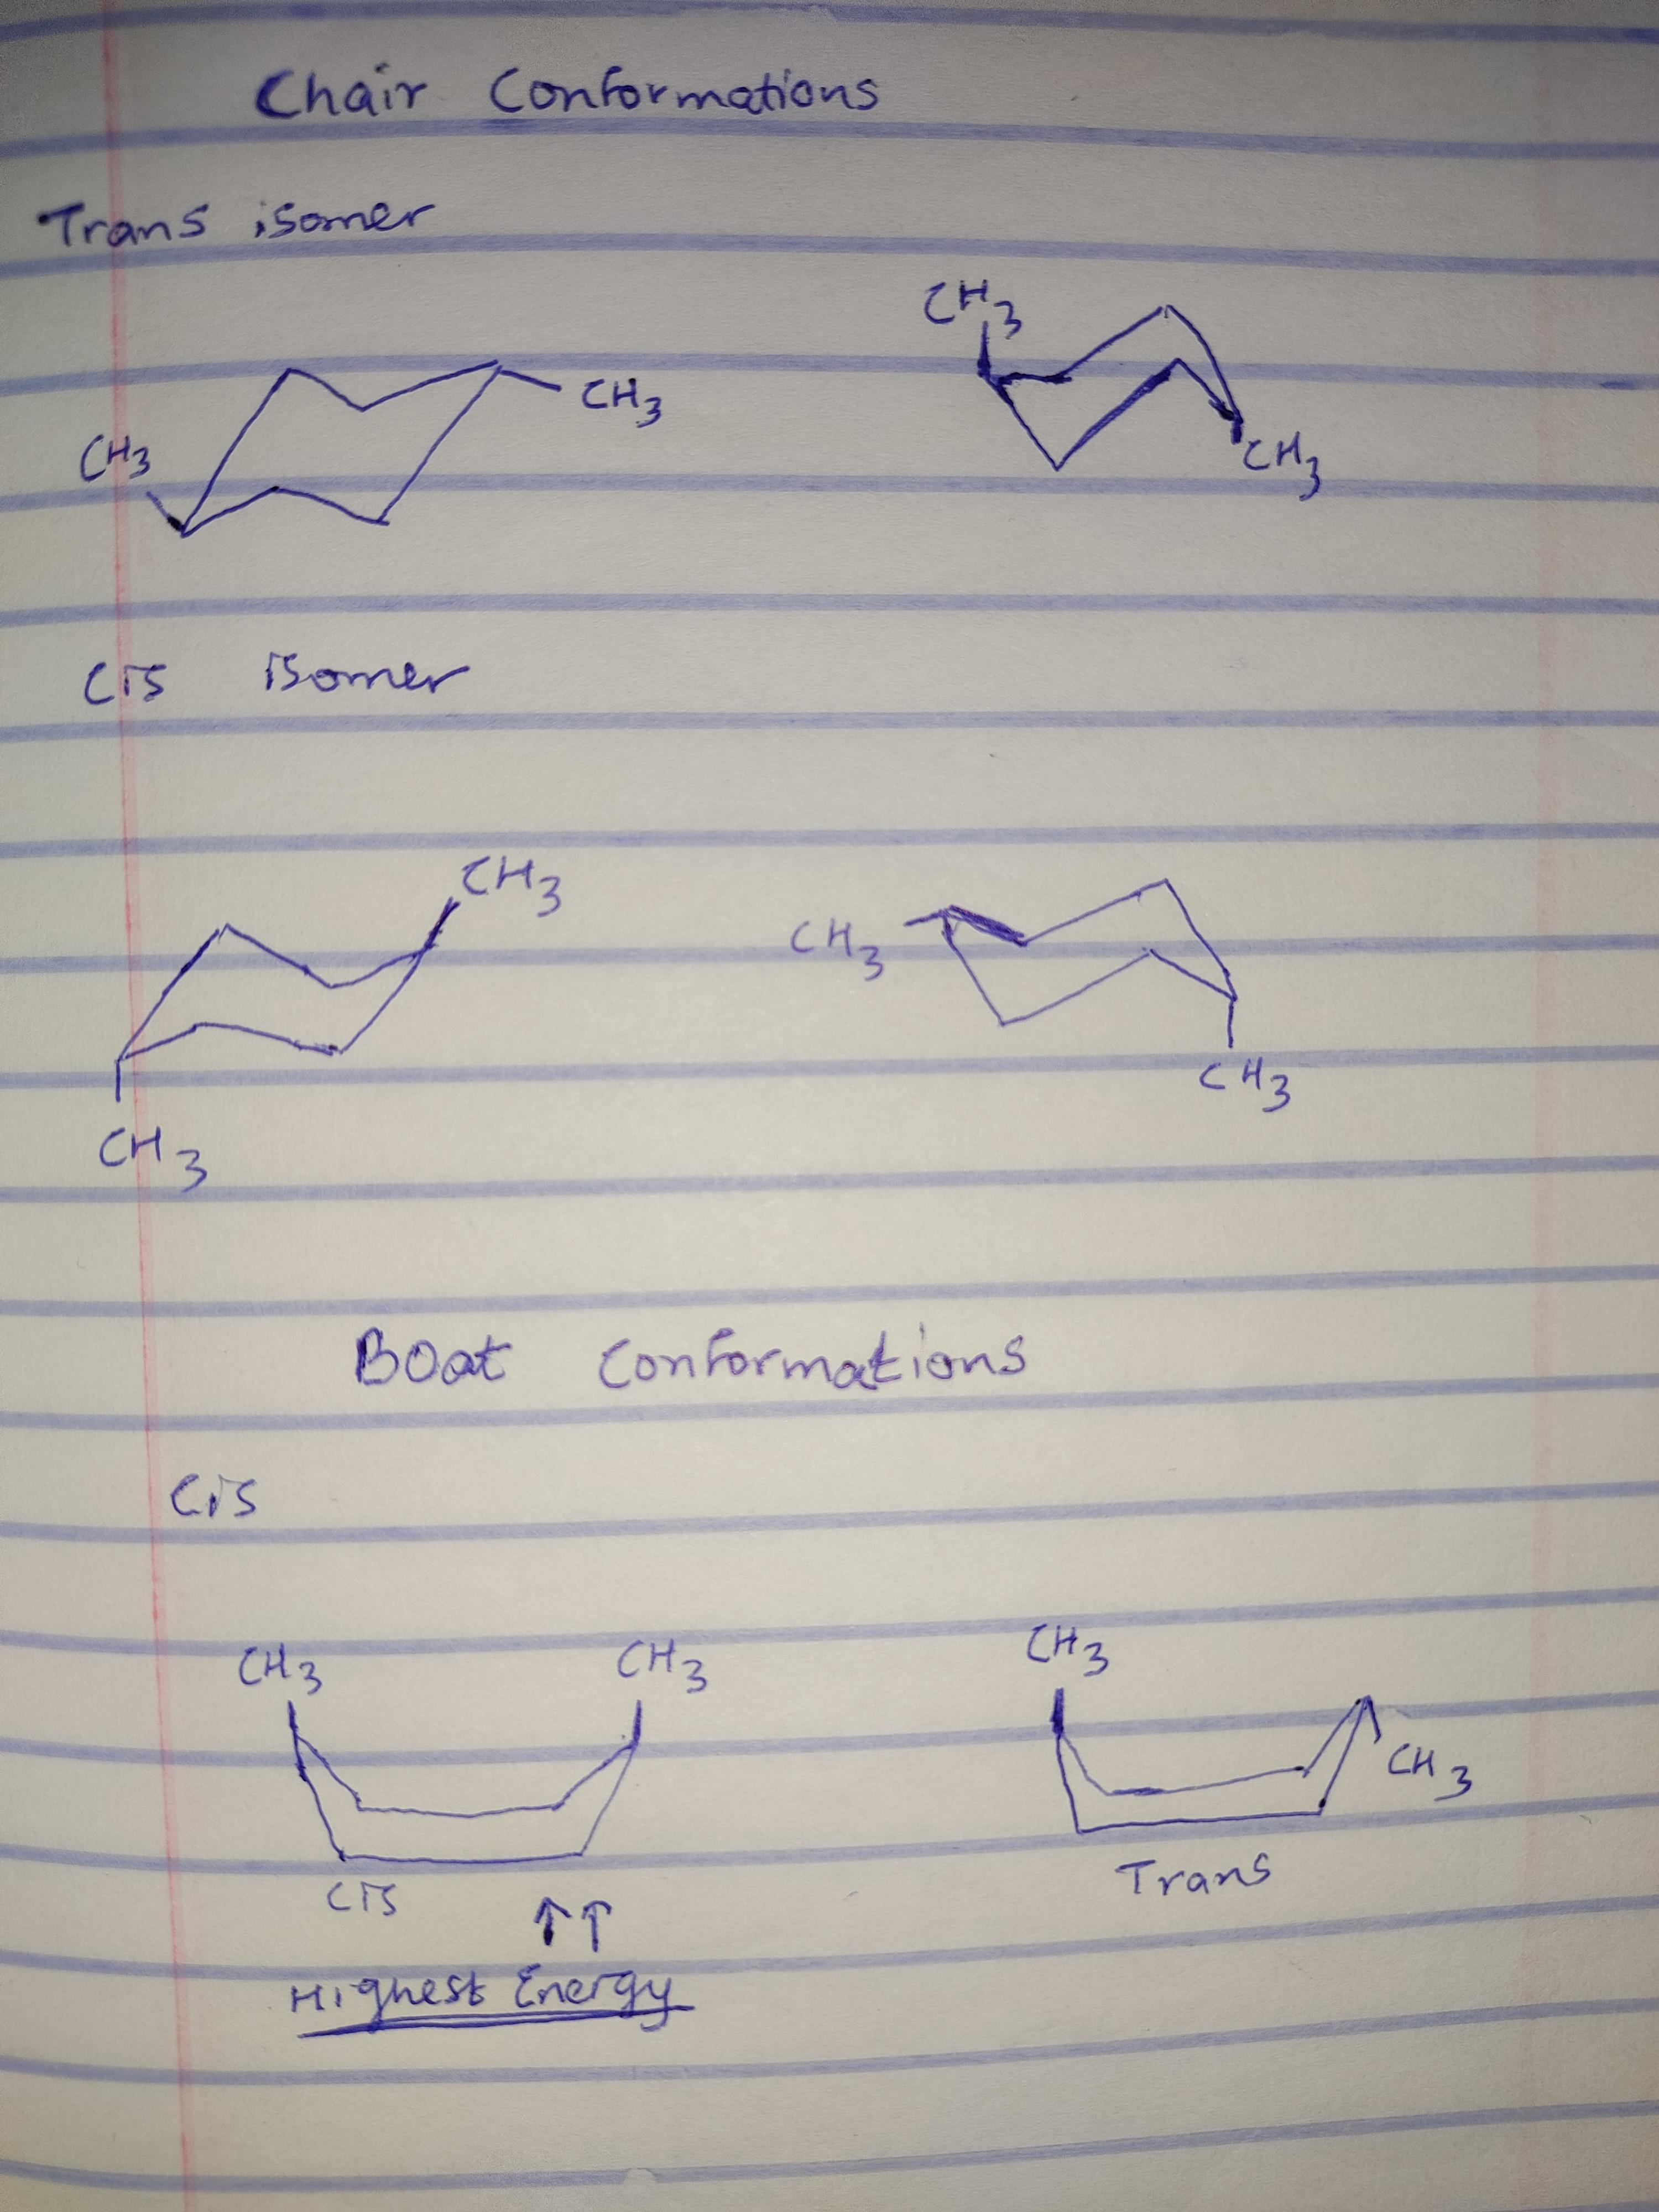 Chair Conformations
Trans isomer
CH3
CH3
CH3
CH3
Cis isomer
CH3
CH3
CH3
CH3
Boat Conformations
Cis
CH3 CH3 CH3
CH3
Cis Trans
↑↑
Highest Energy